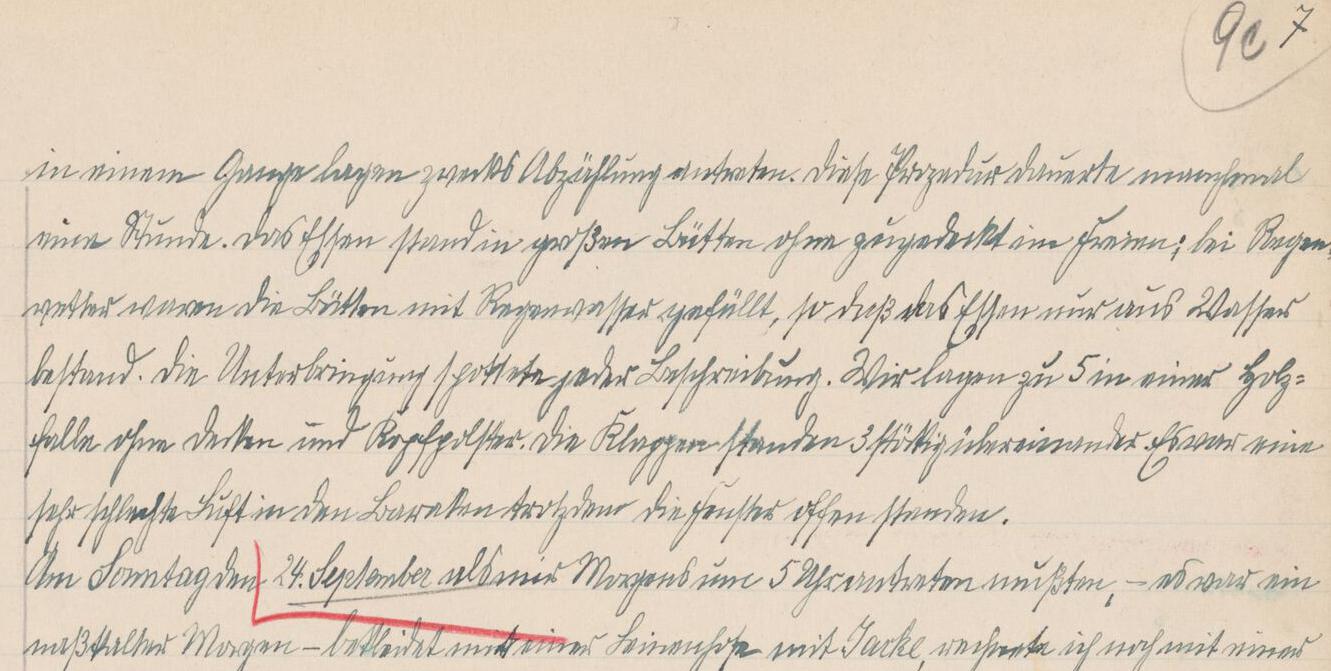 9c 7
in einem Gange lagen zwecks Abzählung antreten. Diese Prozedur dauerte manchmal
eine Stunde. Das Essen stand in großen Bütten ohne zugedeckt im Freien; bei Regen-
wetter waren die Bütten mit Regenwasser gefüllt, so daß das Essen nur aus Wasser
bestand. Die Unterbringung spottete jeder Beschreibung. Wir lagen zu 5 in einer Holz=
falle ohne Decken und Kopfpolster. Die Klappen standen 3 stöckig übereinander. Es war eine
sehr schlechte Luft in den Baracken trotzdem die Fenster offen standen.
Am Sonntag den 24. September als wir Morgens um 5 Uhr antreten mußten, – es war ein
naßkalter Morgen – bekleidet mit einer Leinenhose mit Jacke, rechnete ich noch mit einer